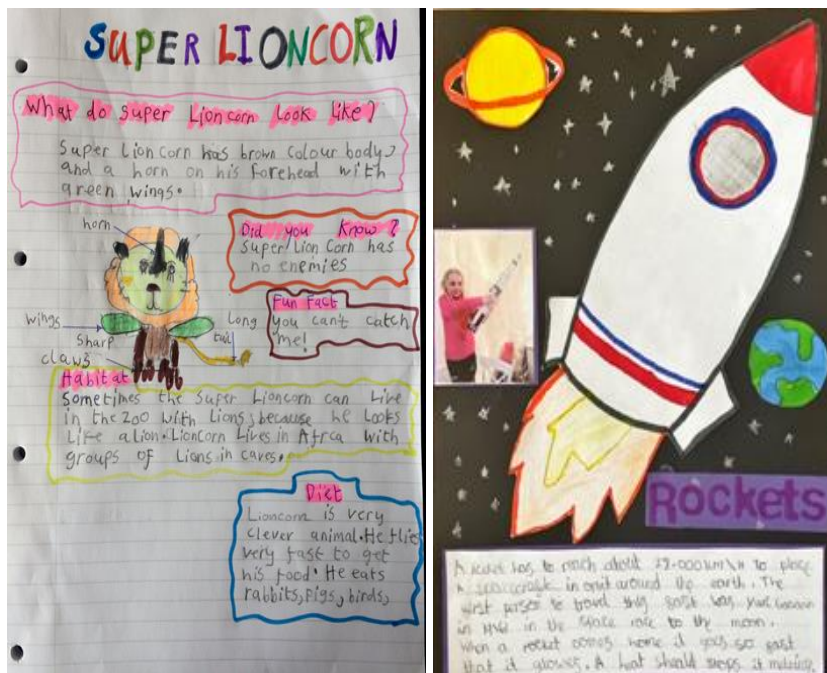 SUPER LIONCORN
What do super Lioncorn look like?
Super Lion Corn has brown colour body,
and a horn on his forehead with
green wings.
horn
Did you Know?
Super Lion Corn has
no enemies
Fun Fact
you can't catch
me!
wings
Sharp
claws
Long
tail
Habitat
Sometimes the Super Lioncorn can Live
in the zoo with Lions, because he Looks
Like a Lion. LionCorn Lives in Africa with
groups of Lions in caves.
Diet
Lioncorn is very
clever animal. He flies
very fast to get
his food. He eats
rabbits, pigs, birds,
Rockets
A rocket has to reach about km\h to place
a spacecraft in orbit around the earth. The
first person to travel this fast was Yuri Gagarin
in in the space race to the moon.
When a rocket comes home it goes so fast
that it glows. A heat sheild stops it melting.